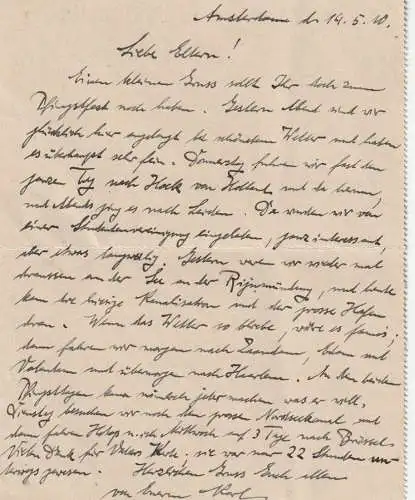 Amsterdam d. 14.5.10.
Liebe Eltern!
Einen kleinen Gruss sollt Ihr doch zum
Pfingstfest noch haben. Gestern Abend sind wir
glücklich hier angelangt bei schönstem Wetter und haben
es überhaupt sehr fein. Donnerstag fuhren wir fast den
ganzen Tag nach Hoek van Holland und da herum,
und Abends ging es nach Leiden. Da wurden wir von
einer Studentenvereinigung eingeladen, ganz interessant,
aber etwas langweilig. Gestern waren wir wieder mal
draussen an der See an der Rijnmündung, und heute
kam die hiesige Kanalisation und der grosse Hafen
dran. Wenn das Wetter so bliebe, wäre es famos;
dann fahren wir morgen nach Zaandam, Edam und
Volendam und übermorgen nach Haarlem. An den beiden
Pfingsttagen kann nämlich jeder machen was er will,
Dienstag besuchen wir noch den grossen Nordseekanal und
dann fahren noch Mittwoch auf 3 Tage nach Brüssel.
Vielen Dank für Vaters Karte. sie war nur 22 Stunden unter-
wegs gewesen. Herzlichen Gruss Euch allen
von Eurem Karl